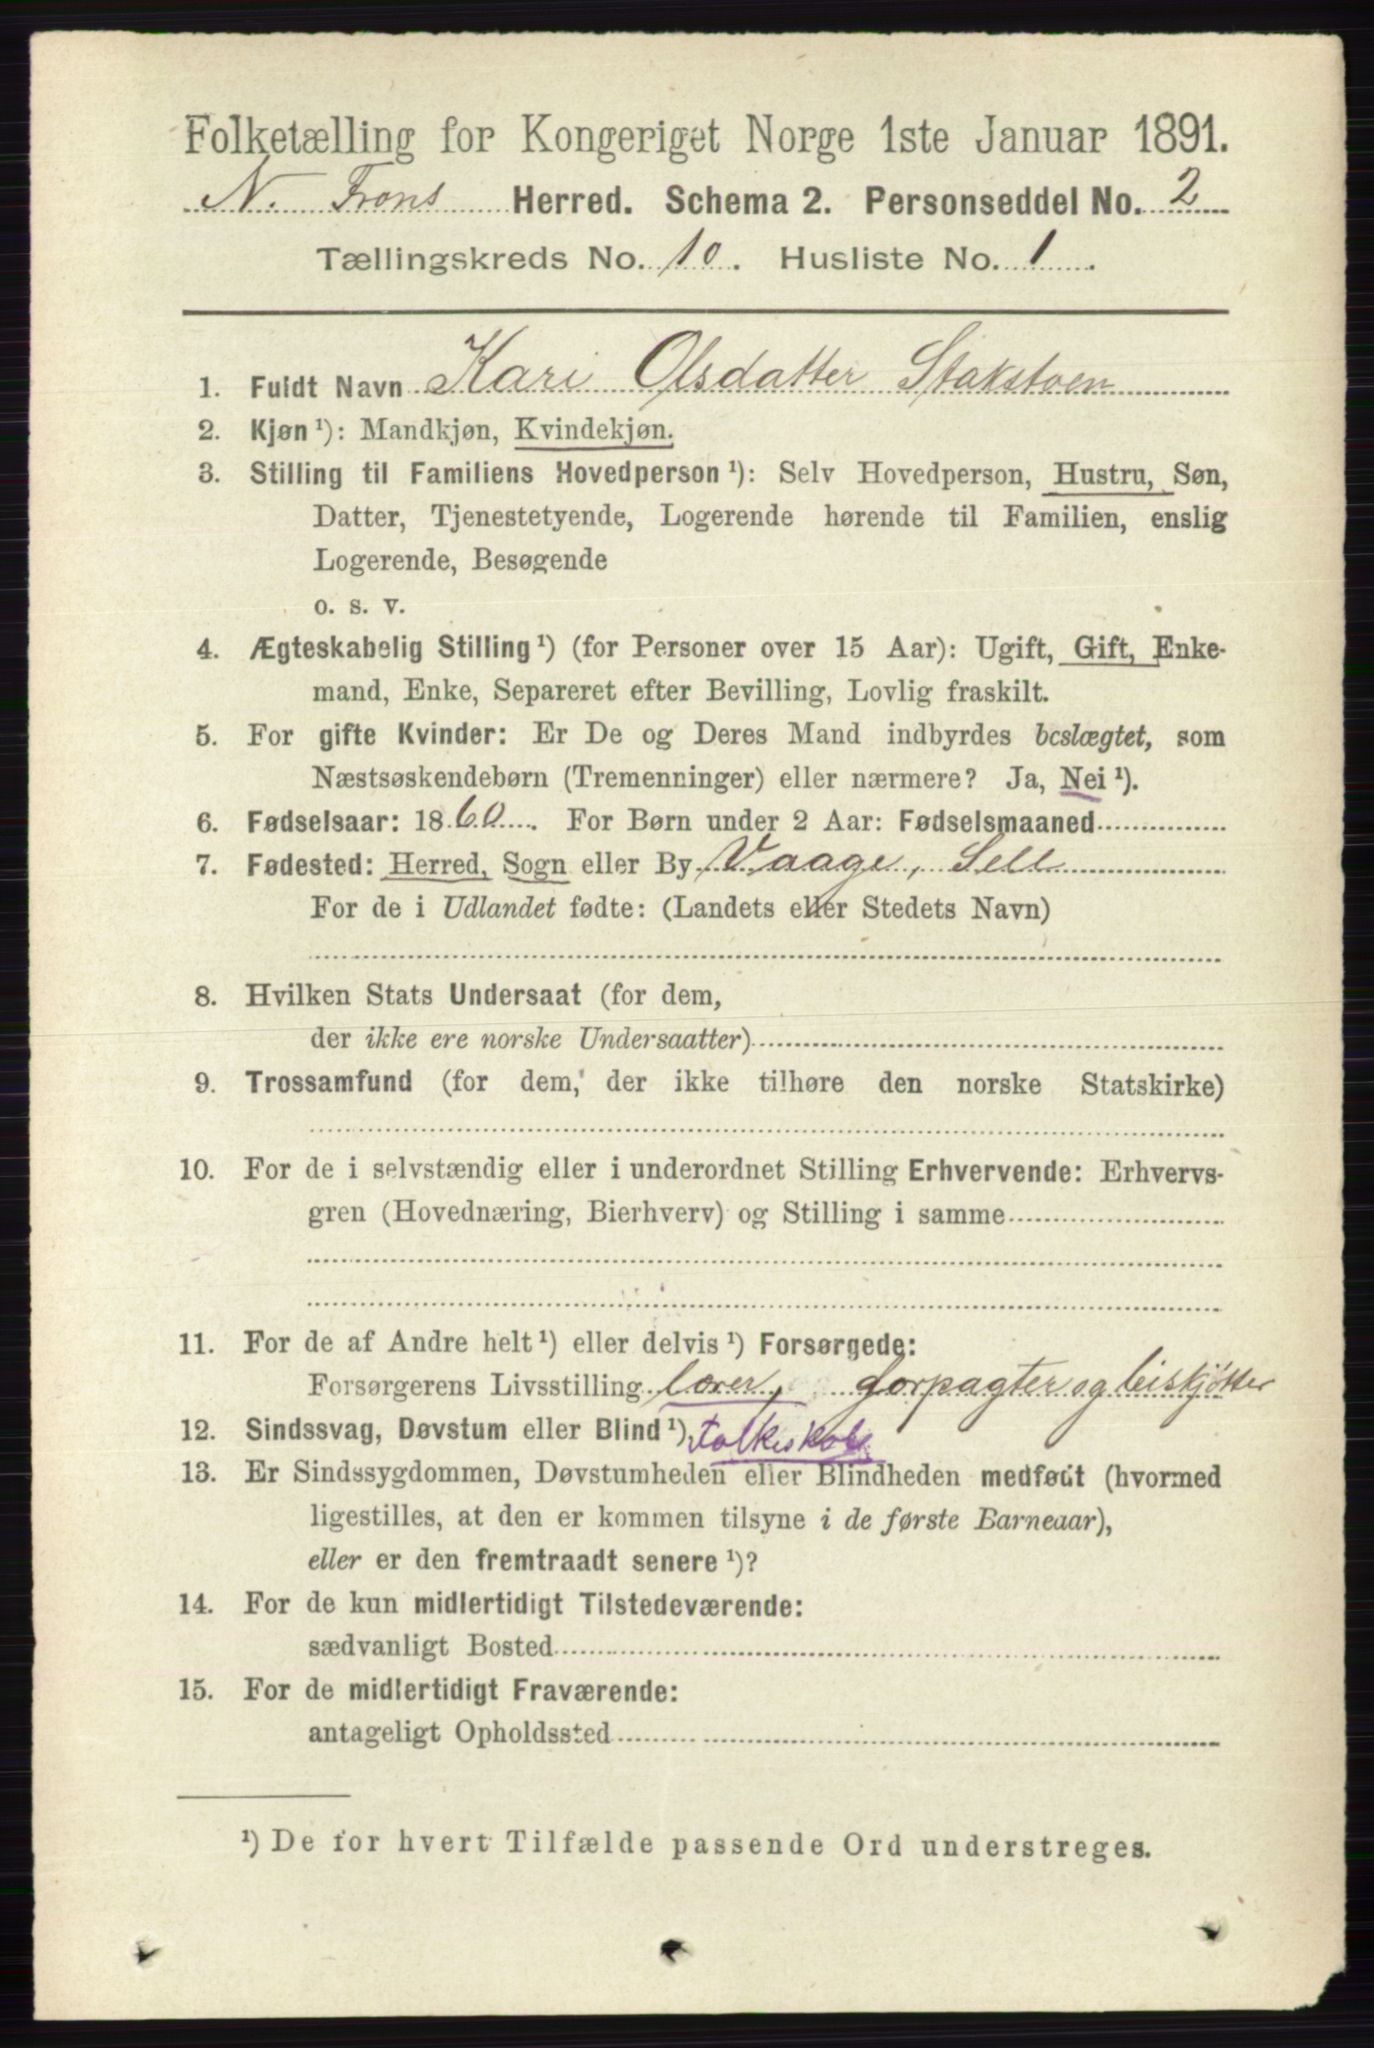 Folketælling for Kongeriget Norge 1ste Januar 1891.
N. Frons Herred. Schema 2. Personseddel No. 2
Tællingskreds No. 10. Husliste No. 1.
1. Fuldt Navn Kari Olsdatter Stakstoen
2. Kjøn ¹): Mandkjøn, Kvindekjøn.
3. Stilling til Familiens Hovedperson ¹): Selv Hovedperson, Hustru, Søn,
Datter, Tjenestetyende, Logerende hørende til Familien, enslig
Logerende, Besøgende
o. s. v.
4. Ægteskabelig Stilling ¹) (for Personer over 15 Aar): Ugift, Gift, Enke-
mand, Enke, Separeret efter Bevilling, Lovlig fraskilt.
5. For gifte Kvinder: Er De og Deres Mand indbyrdes beslægtet, som
Næstsøskendebørn (Tremenninger) eller nærmere? Ja, Nei ¹).
6. Fødselsaar: 1860. For Børn under 2 Aar: Fødselsmaaned
7. Fødested: Herred, Sogn eller By Vaage, Sell
For de i Udlandet fødte: (Landets eller Stedets Navn)
8. Hvilken Stats Undersaat (for dem,
der ikke ere norske Undersaatter)
9. Trossamfund (for dem, der ikke tilhøre den norske Statskirke)
10. For de i selvstændig eller i underordnet Stilling Erhvervende: Erhvervs-
gren (Hovednæring, Bierhverv) og Stilling i samme
11. For de af Andre helt ¹) eller delvis ¹) Forsørgede:
Forsørgerens Livsstilling lærer, forpagter og leiskjøtter
12. Sindssvag, Døvstum eller Blind ¹) Folkeskole
13. Er Sindssygdommen, Døvstumheden eller Blindheden medfødt (hvormed
ligestilles, at den er kommen tilsyne i de første Barneaar),
eller er den fremtraadt senere ¹)?
14. For de kun midlertidigt Tilstedeværende:
sædvanligt Bosted
15. For de midlertidigt Fraværende:
antageligt Opholdssted
¹) De for hvert Tilfælde passende Ord understreges.